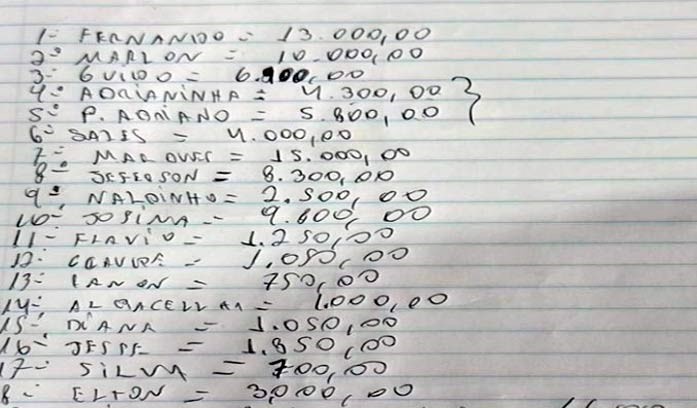 1- FERNANDO = 13.000,00
2- MARLON = 10.000,00
3- GUIDO = 6.900,00
4- ADRIANINHA = 4.300,00
5- P. ADRIANO = 5.800,00
6- SALES = 4.000,00
7- MARQUES = 15.000,00
8- JEFERSON = 8.300,00
9- NALDINHO = 2.500,00
10- JOSIMA - 9.600,00
11- FLAVIO - 1.250,00
12- = 1.050,00
13- = 750,00
14- = 1.000,00
15- DIANA = 1.050,00
16- JESSE = 1.850,00
17- SILVA = 700,00
8- ELTON = 3,000,00